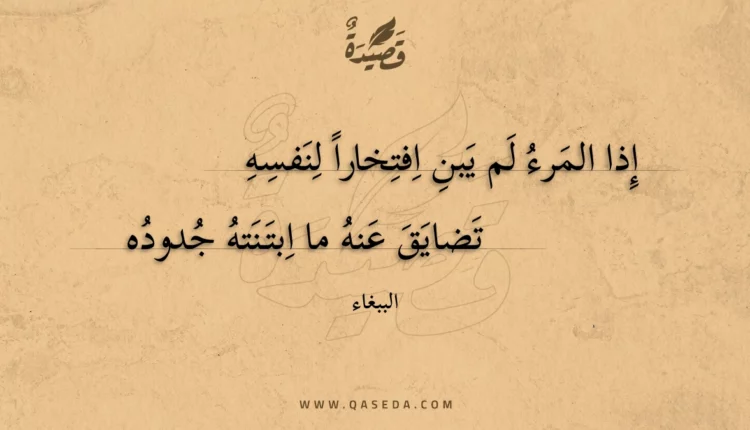 قَصِيْدَةٌ
إِذا المَرءُ لَم يَبنِ اِفتِخاراً لِنَفسِهِ
تَضايَقَ عَنهُ ما اِبتَنَتهُ جُدودُه
الببغاء
WWW.QASEDA.COM